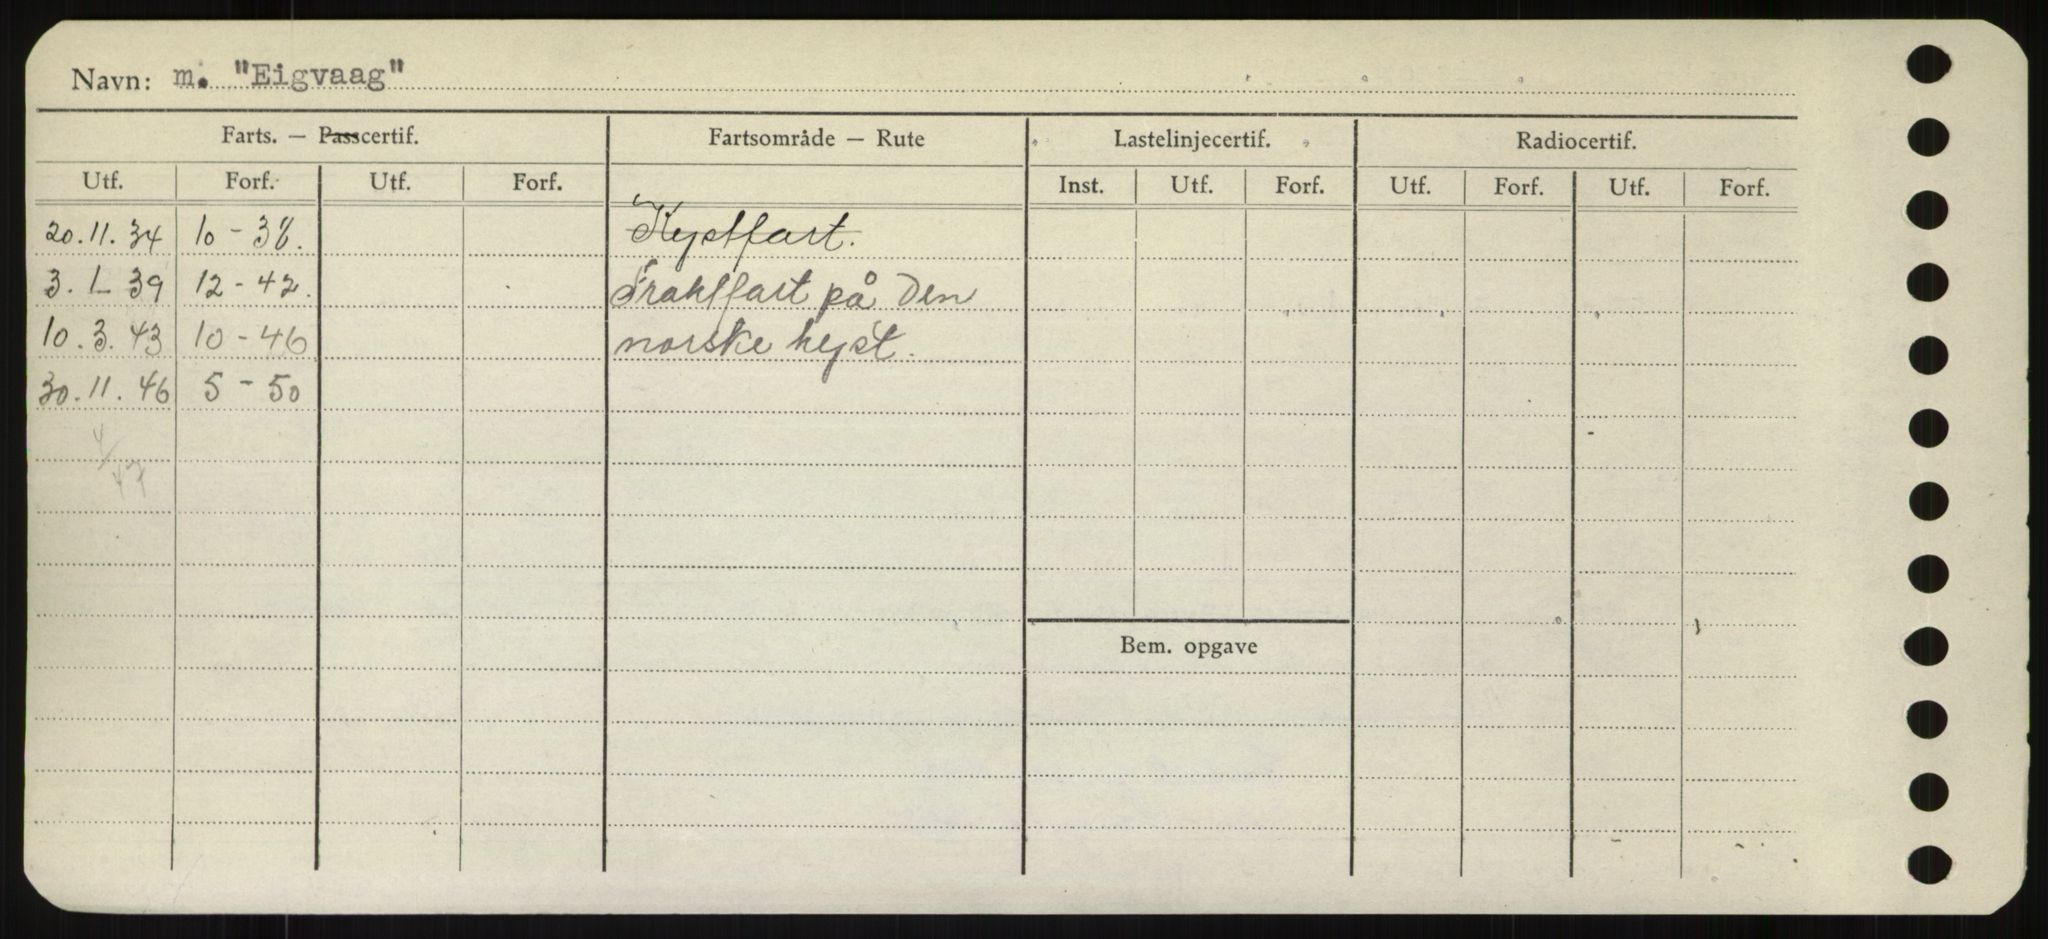 Navn: m. "Eigvaag"
Farts. — Passcertif. Fartsområde — Rute Lastelinjecertif. Radiocertif.
Utf. Forf. Utf. Forf. Inst. Utf. Forf. Utf. Forf. Utf. Forf.
20.11.34 10-38. Kystfart.
3. 1_ 39 12-42. Fraktfart på den
10.3.43 10-46 norske kyst.
30.11.46 5-50
4/47
Bem. opgave